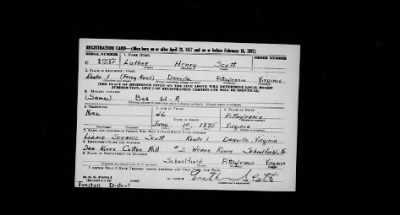 REGISTRATION CARD—(Men born on or after April 28, 1877 and on or before February 16, 1897)
SERIAL NUMBER 1. NAME (Print) ORDER NUMBER
U 1237 Luther Henry Scott
2. PLACE OF RESIDENCE (Print)
Route 1 (Ferry Road) Danville Pittsylvania Virginia
[THE PLACE OF RESIDENCE GIVEN ON THE LINE ABOVE WILL DETERMINE LOCAL BOARD
JURISDICTION; LINE 2 OF REGISTRATION CERTIFICATE WILL BE IDENTICAL]
3. MAILING ADDRESS
(Same) Box 61-A
4. TELEPHONE 5. AGE IN YEARS 6. PLACE OF BIRTH
None 46 Pittsylvania
DATE OF BIRTH
June 10, 1895 Virginia
Scott Route 1 Danville, Virginia
Dan River Cotton Mill #3 Weave Room Schoolfield, Va
Schoolfield Pittsylvania Virginia
I AFFIRM THAT I HAVE VERIFIED ABOVE ANSWERS AND THAT THEY ARE TRUE.
Luther H Scott
Tunstall District